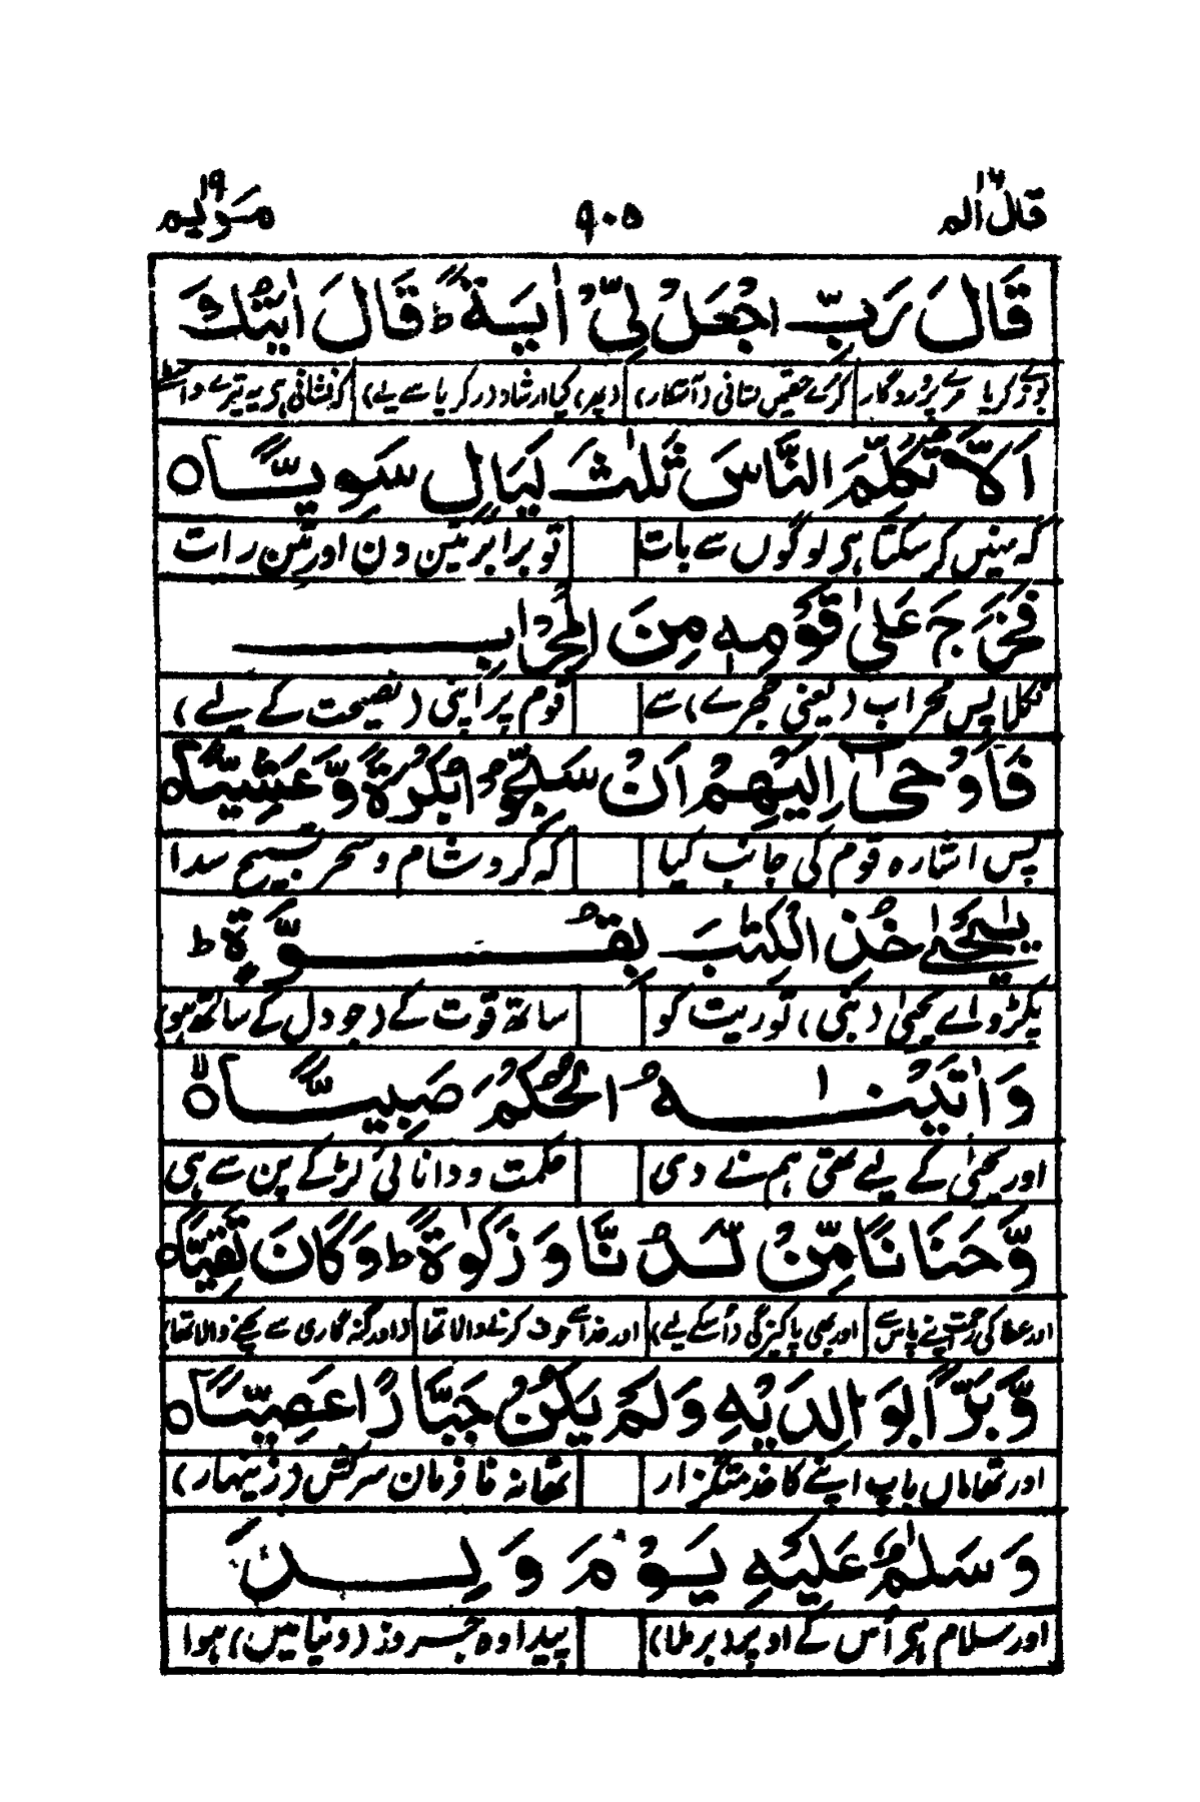 قال الم ١٦ ٩٠٥ مریم ١٩
قَالَ رَبِّ اجْعَلْ لِّیْ اٰیَةً ؕ قَالَ اٰیَتُكَ
بولے زکریا مرے پروردگار کر دے نشانی (آشکار) (پھر) کیا ارشاد (زکریا سے یے) کہ نشانی ہی یہ تیرے واسطے
اَلَّا تُكَلِّمَ النَّاسَ ثَلٰثَ لَیَالٍ سَوِیًّا ○
کہ نہیں کر سکتا ہی لوگوں سے بات تو برابر تین دن اور تین رات
فَخَرَجَ عَلٰی قَوْمِهٖ مِنَ الْمِحْرَابِ
نکلا پس محراب (یعنی حجرے) سے قوم پر اپنی (نصیحت کے لیے)
فَاَوْحٰۤی اِلَیْهِمْ اَنْ سَبِّحُوْا بُكْرَةً وَّ عَشِیًّا ○
پس اشارہ قوم کی جانب کیا کہ کرو شام و سحر تسبیح سدا
یٰیَحْیٰی خُذِ الْكِتٰبَ بِقُوَّةٍ ؕ
پکڑو اے یحییٰ (نبی) توریت کو ساتھ قوت کے (جو دل کے ساتھ ہو)
وَ اٰتَیْنٰهُ الْحُكْمَ صَبِیًّا ○ۙ
اور یحییٰ کے لیے تھی ہم نے دی حکمت و دانائی لڑکے پن سے ہی
وَّ حَنَانًا مِّنْ لَّدُنَّا وَ زَكٰوةً ؕ وَ كَانَ تَقِیًّا ○
اور عطا کی رحمت اپنے پاس سے اور بھی پاکیزگی (اسکے لیے) اور خدا سے خوف کرنے والا تھا (اور گنہ گاری سے بچنے والا تھا)
وَّ بَرًّۢا بِوَالِدَیْهِ وَ لَمْ یَكُنْ جَبَّارًا عَصِیًّا ○
اور تھا ماں باپ اپنے کا خدمتگزار تھا نہ نافرمان سرکش (زینہار)
وَ سَلٰمٌ عَلَیْهِ یَوْمَ وُلِدَ
اور سلام ہی اُس کے اوپر (برملا) پیدا وہ جس روز (دنیا میں) ہوا